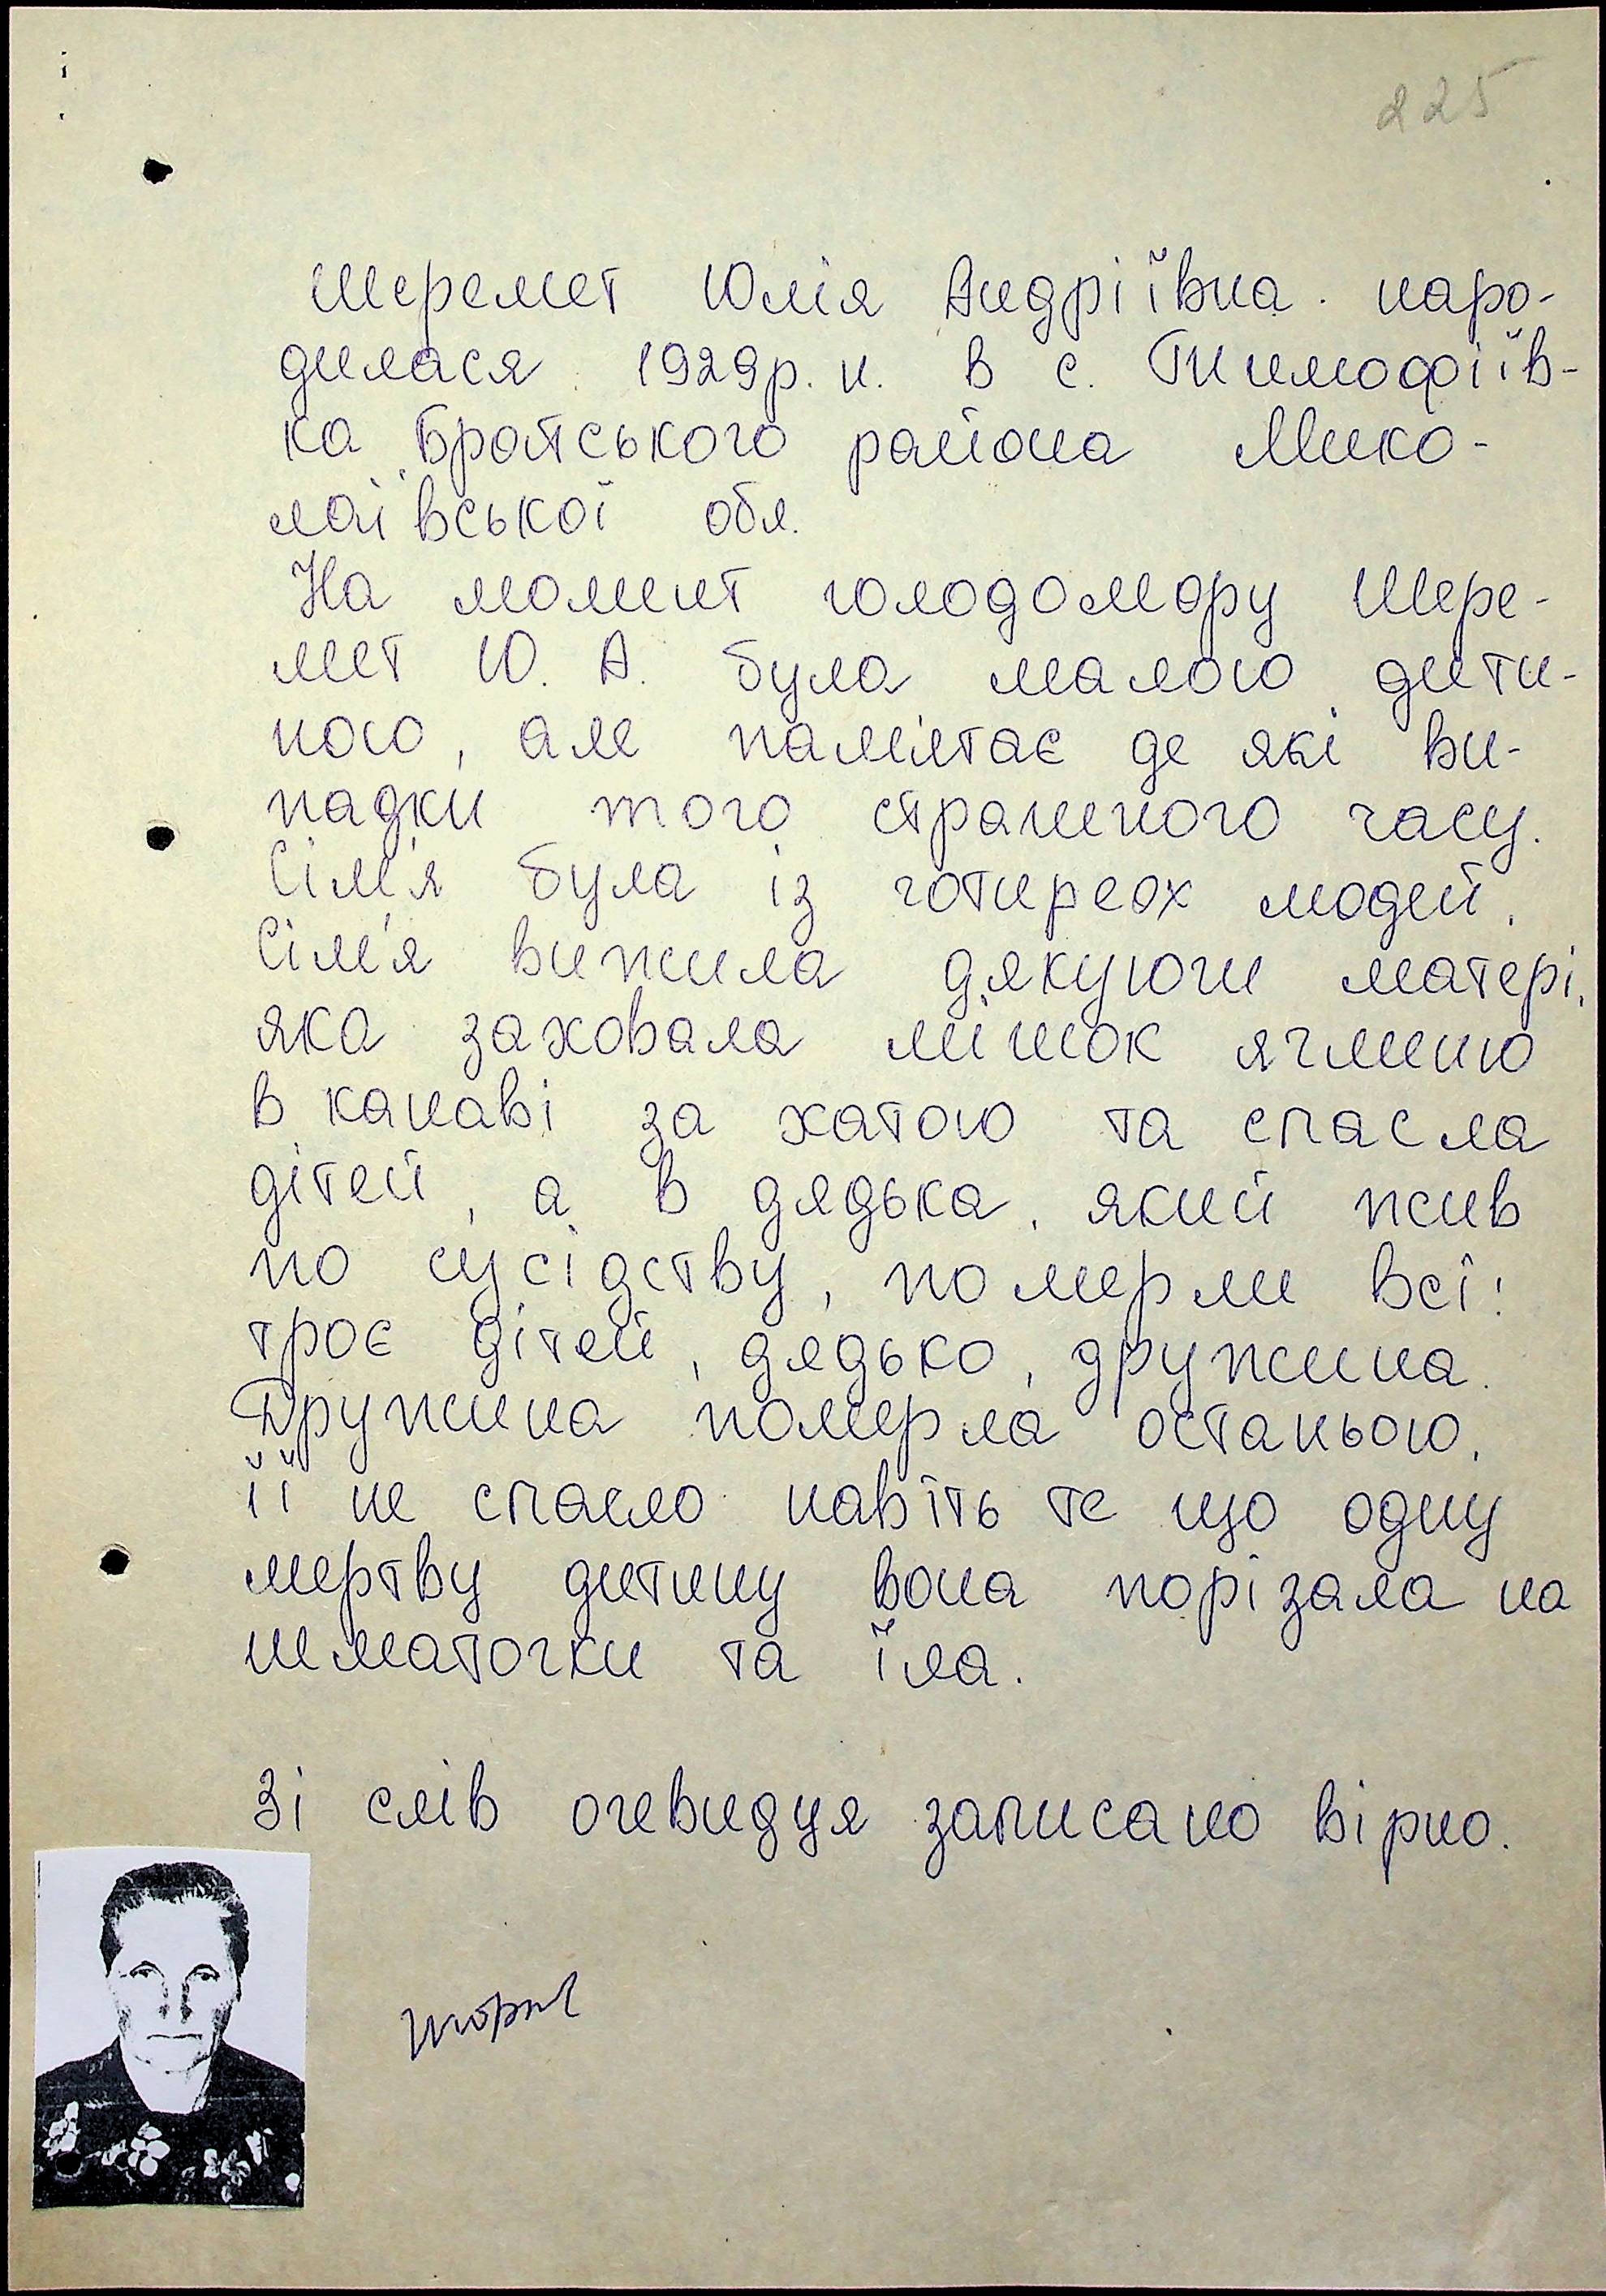 225
Шеремет Юлія Андріївна. наро-
дилася 1929р. н. в с. Тимофіїв-
ка Братського района Мико-
лаївської обл.
На момент голодомору Шере-
мет Ю. А. була малою дити-
ною, але пам'ятає де які ви-
падки того страшного часу.
Сім'я була із чотиреох людей.
Сім'я вижила дякуючи матері,
яка заховала мішок ячменю
в канаві за хатою та спасла
дітей, а в дядька, який жив
по сусідству, померли всі:
троє дітей, дядько, дружина.
Дружина померла останьою,
її не спасло навіть те що одну
мертву дитину вона порізала на
шматочки та їла.
Зі слів очевидця записано вірно.